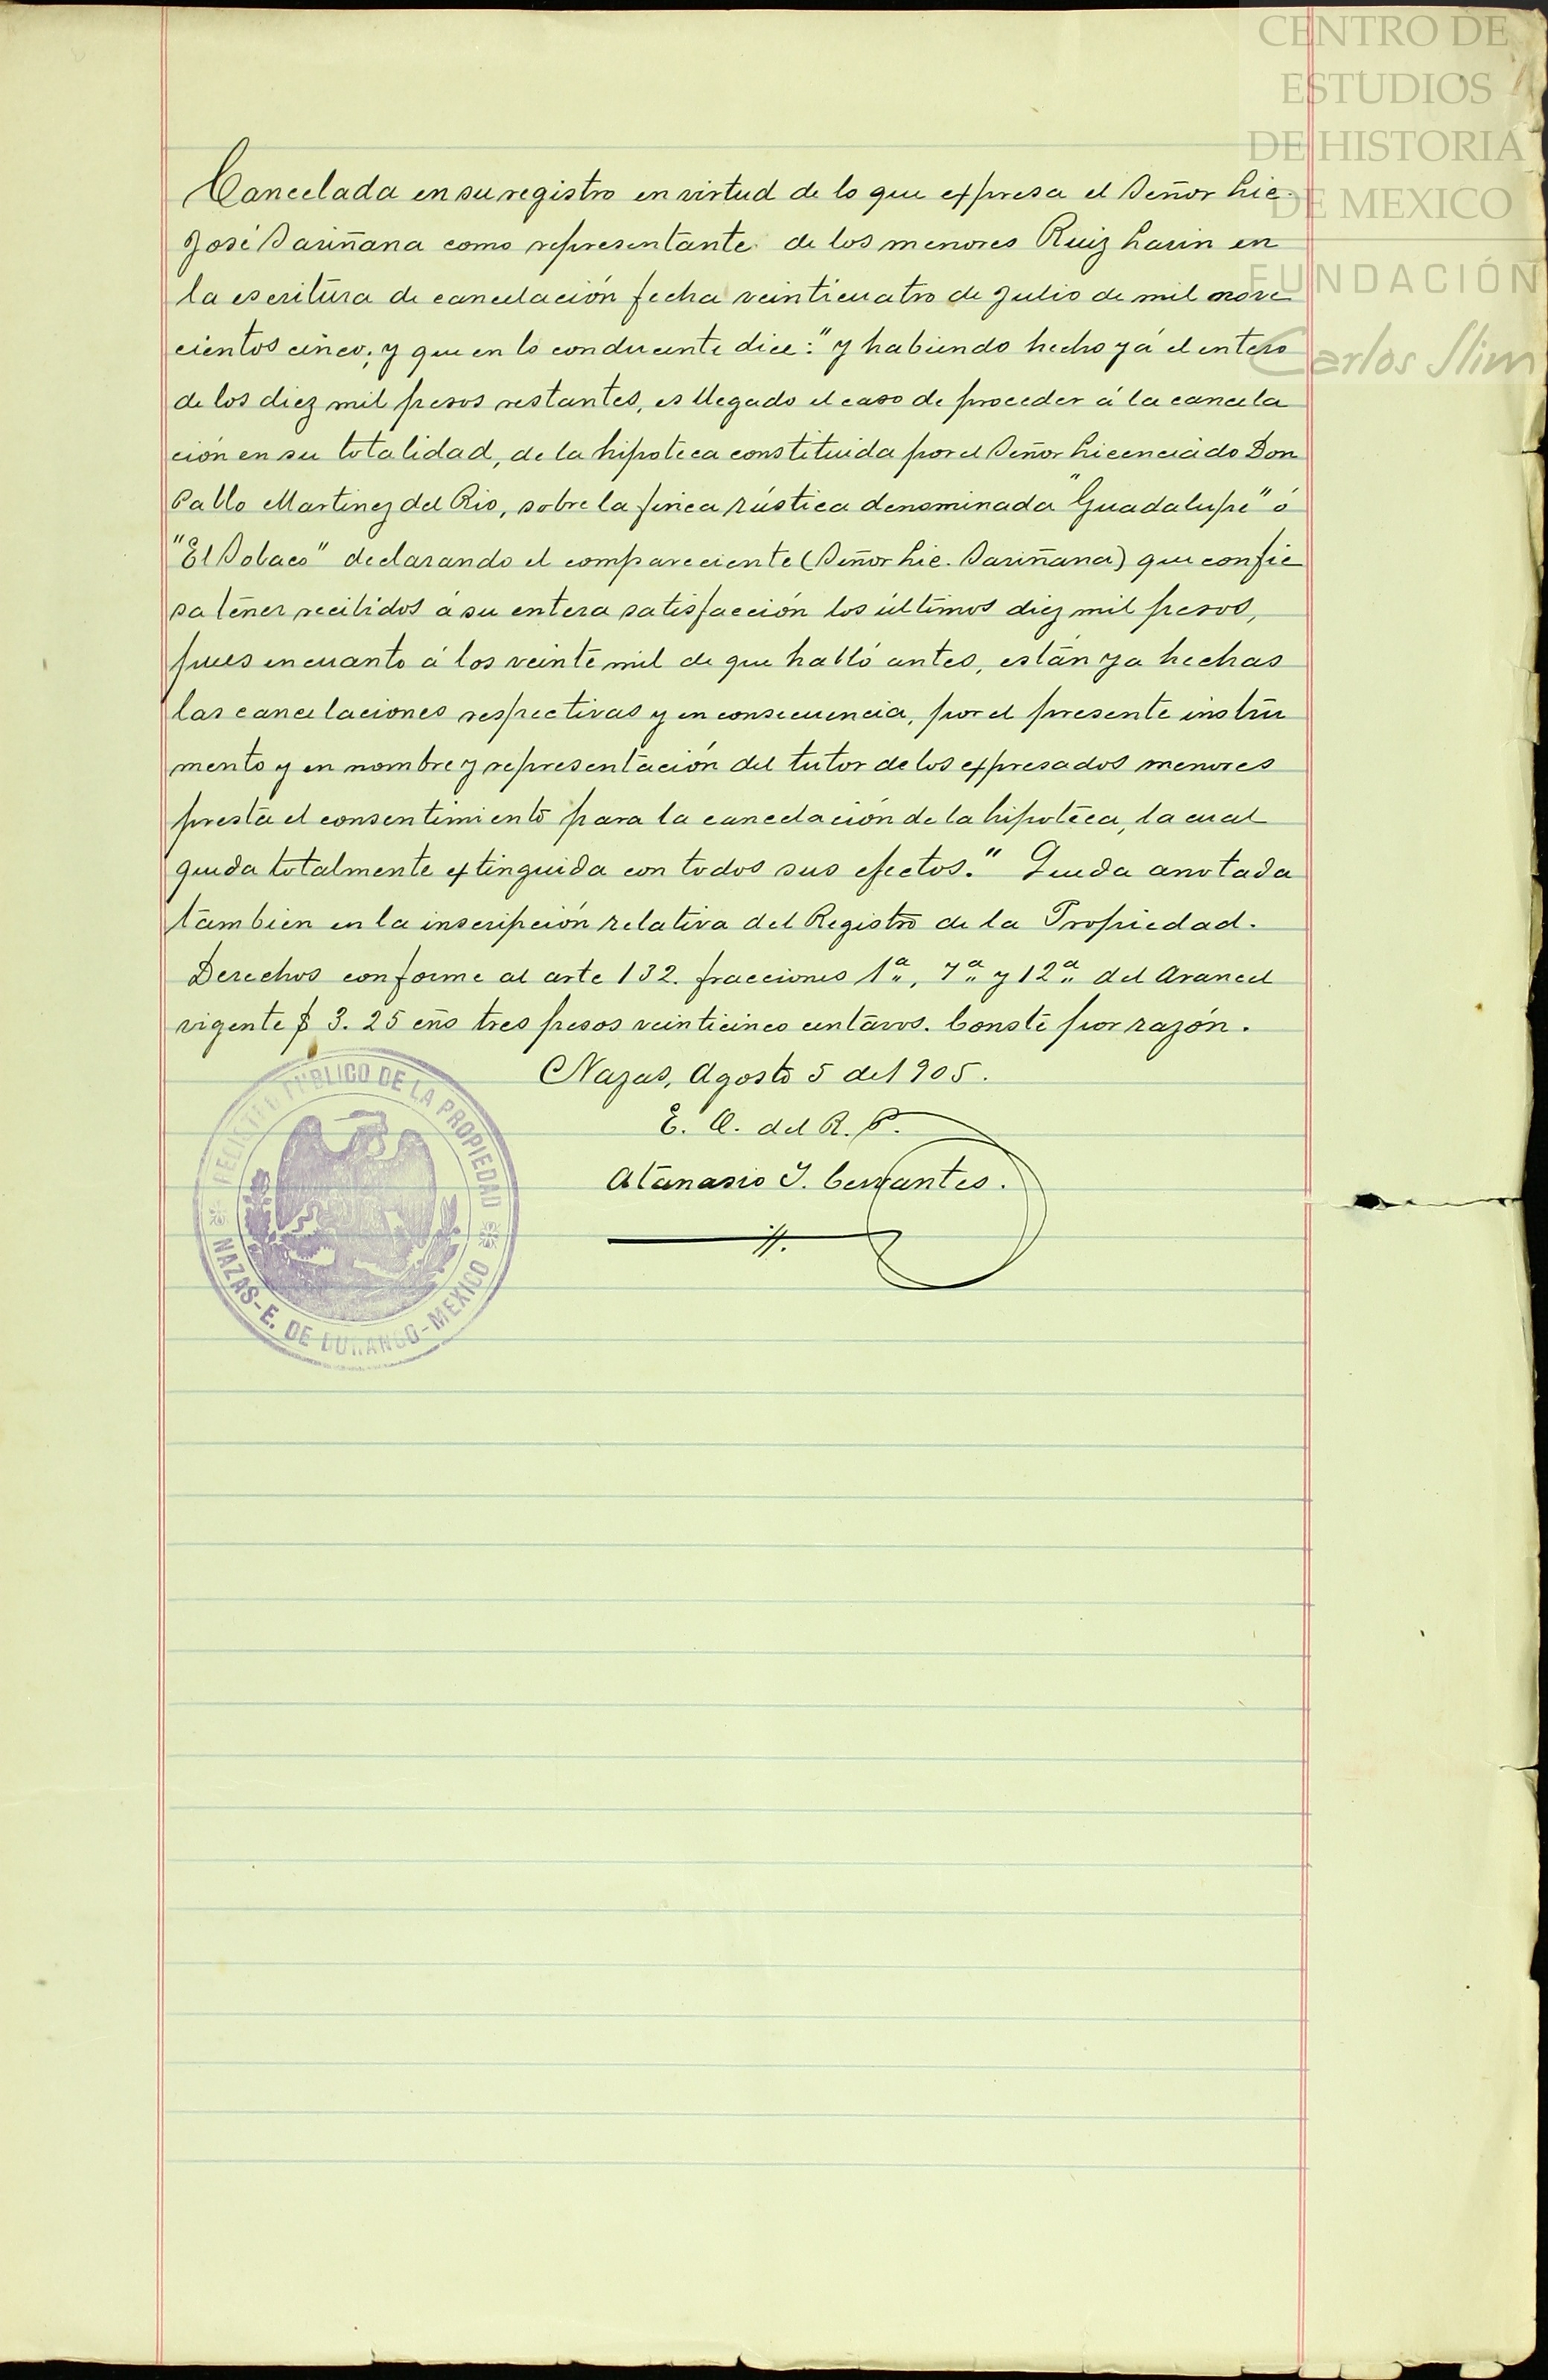 CENTRO DE
ESTUDIOS
DE HISTORIA
DE MEXICO
FUNDACIÓN
Carlos Slim
Cancelada en su registro en virtud de lo que expresa el Señor Lic.
José Sariñana como representante de los menores Ruiz Lavin en
la escritura de cancelación fecha veinticuatro de Julio de mil nove
cientos cinco; y que en lo conducente dice: "y habiendo hecho yá el entero
de los diez mil pesos restantes, es llegado el caso de proceder á la cancela
ción en su totalidad, de la hipoteca constituida por el Señor Licenciado Don
Pablo Martinez del Rio, sobre la finca rústica denominada "Guadalupe" ó
"El Sobaco" declarando el compareciente (Señor Lic. Sariñana) que confie
sa tener recibidos á su entera satisfacción los últimos diez mil pesos,
pues en cuanto á los veinte mil de que habló antes, están ya hechas
las cancelaciones respectivas y en consecuencia, por el presente instru
mento y en nombre y representación del tutor de los expresados menores
presta el consentimiento para la cancelación de la hipoteca, la cual
queda totalmente extinguida con todos sus efectos." Queda anotada
tambien en la inscripción relativa del Registro de la Propiedad.
Derechos conforme al arte 132. fracciones 1ª, 7ª y 12ª del Arancel
vigente $ 3.25 cñs tres pesos veinticinco centavos. Conste por razón.
Nazas, Agosto 5 de 1905.
E. O. del R. P.
Atanasio Y. Cervantes.
REGISTRO PUBLICO DE LA PROPIEDAD
NAZAS-E. DE DURANGO-MEXICO